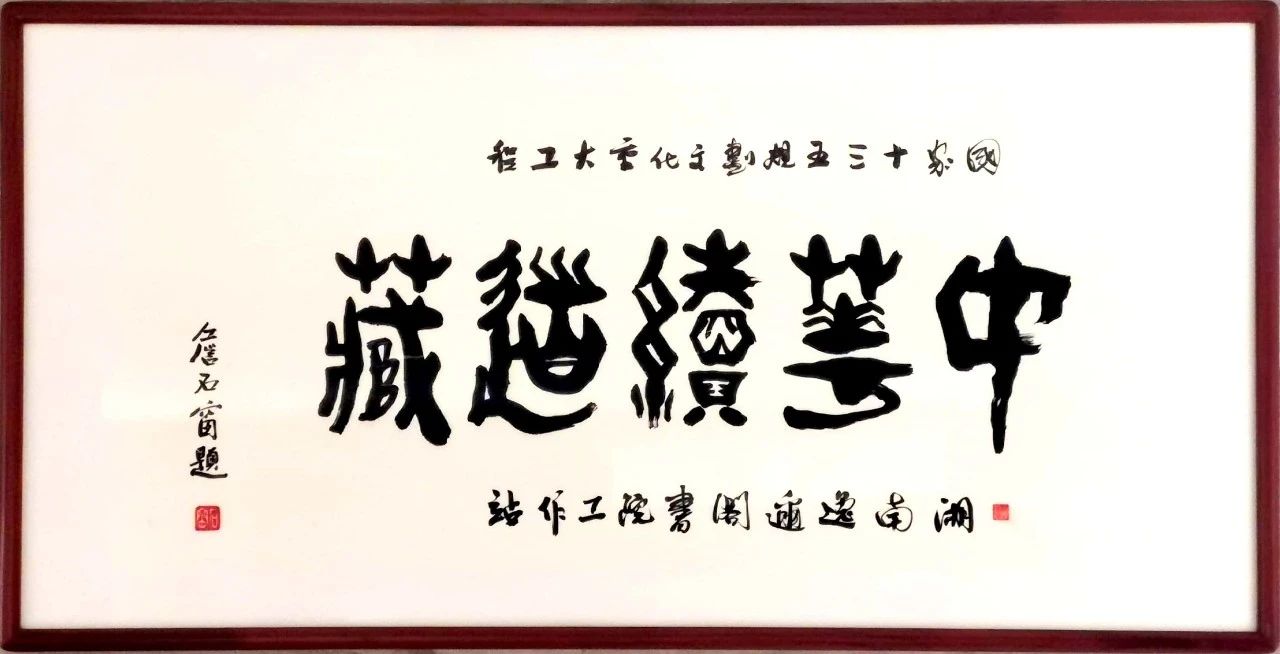 國家十三五規劃文化重大工程
中華續道藏
湖南逸迩閣書院工作站
詹石窗題